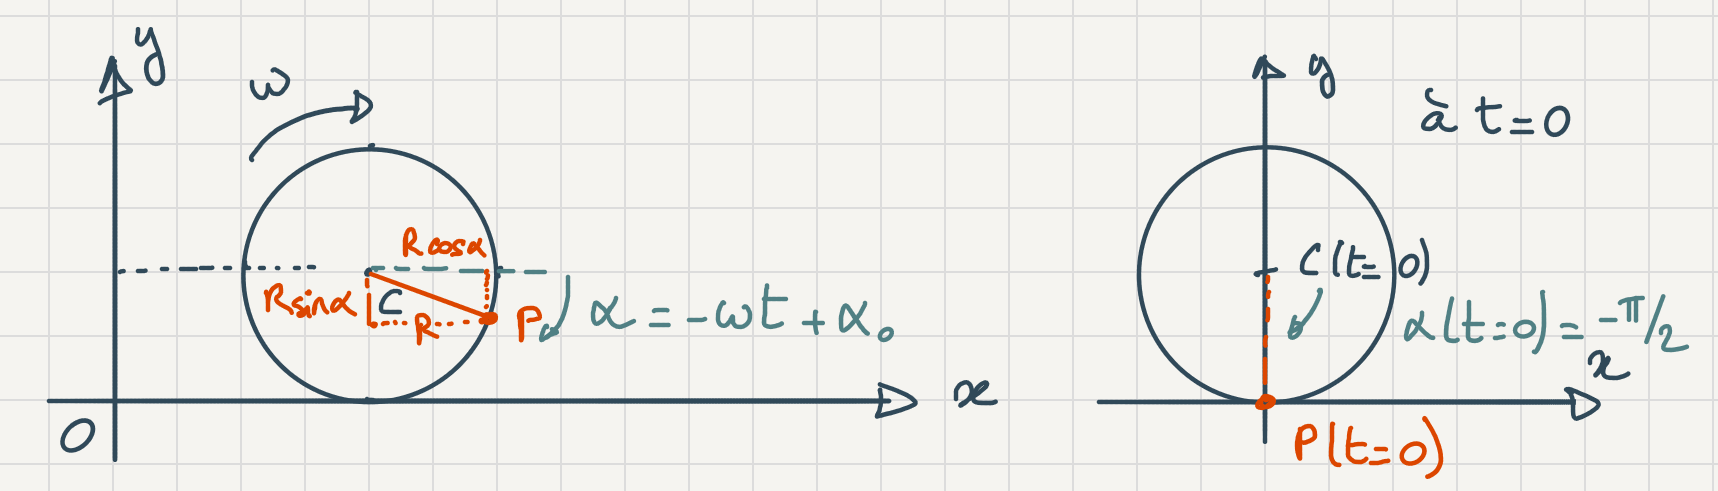 y
ω
R cosα
R sinα
C
R
P
α = -ωt + α₀
x
O
y
à t = 0
C(t = 0)
α(t = 0) = -π/2
x
P(t = 0)